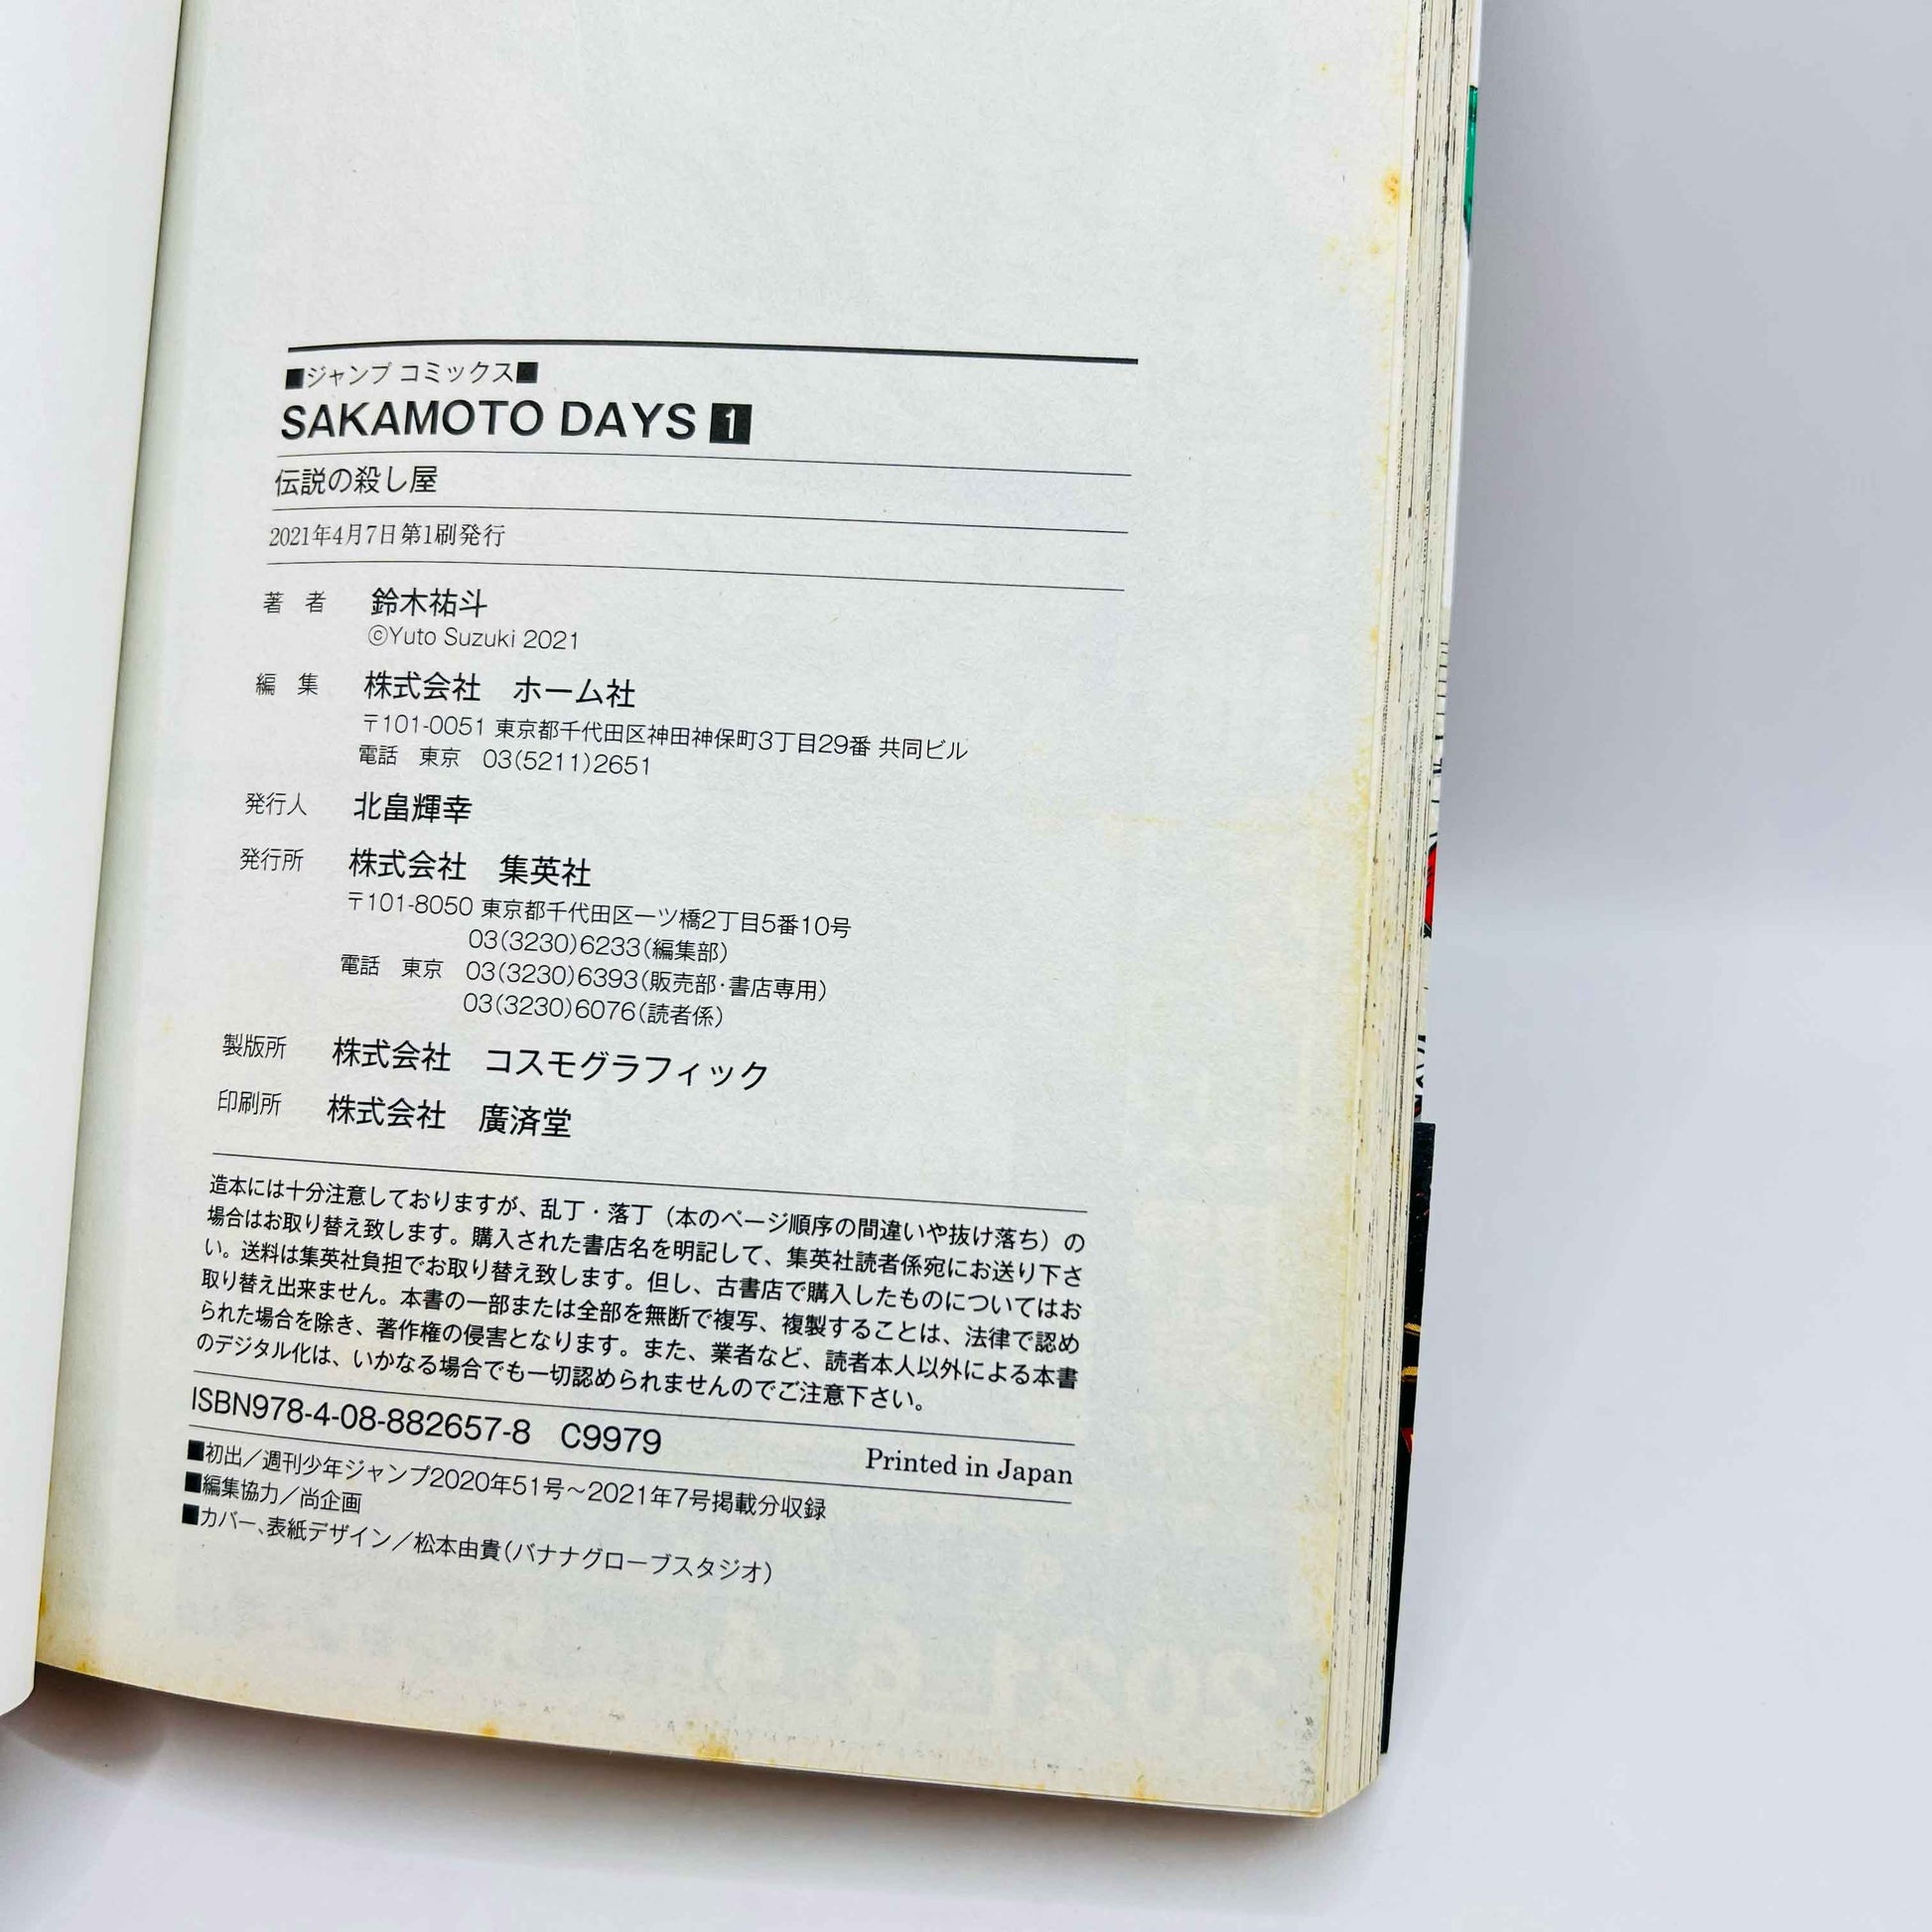 ■ジャンプ コミックス■
SAKAMOTO DAYS 1
伝説の殺し屋
2021年4月7日第1刷発行
著 者 鈴木祐斗
©Yuto Suzuki 2021
編 集 株式会社 ホーム社
〒101-0051 東京都千代田区神田神保町3丁目29番 共同ビル
電話 東京 03(5211)2651
発行人 北畠輝幸
発行所 株式会社 集英社
〒101-8050 東京都千代田区一ツ橋2丁目5番10号
03(3230)6233(編集部)
電話 東京 03(3230)6393(販売部・書店専用)
03(3230)6076(読者係)
製版所 株式会社 コスモグラフィック
印刷所 株式会社 廣済堂
造本には十分注意しておりますが、乱丁・落丁（本のページ順序の間違いや抜け落ち）の
場合はお取り替え致します。購入された書店名を明記して、集英社読者係宛にお送り下さ
い。送料は集英社負担でお取り替え致します。但し、古書店で購入したものについてはお
取り替え出来ません。本書の一部または全部を無断で複写、複製することは、法律で認め
られた場合を除き、著作権の侵害となります。また、業者など、読者本人以外による本書
のデジタル化は、いかなる場合でも一切認められませんのでご注意下さい。
ISBN978-4-08-882657-8 C9979 Printed in Japan
■初出／週刊少年ジャンプ2020年51号～2021年7号掲載分収録
■編集協力／尚企画
■カバー、表紙デザイン／松本由貴(バナナグローブスタジオ)